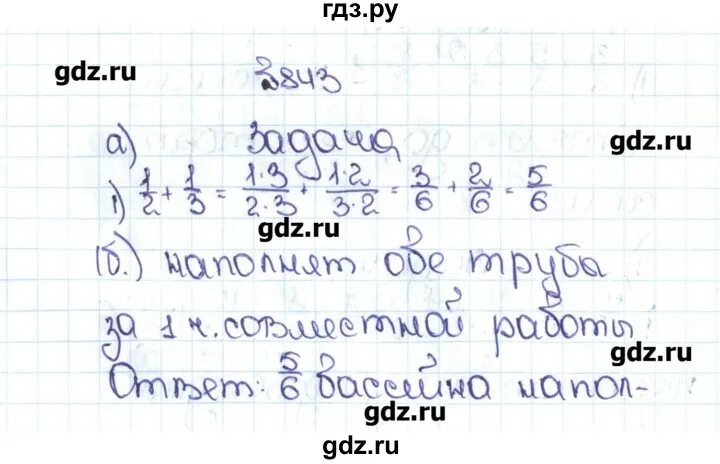 гдз.ру
gdz.ru
843
а) Задача
gdz.ru
1) 1/2 + 1/3 = 1·3/2·3 + 1·2/3·2 = 3/6 + 2/6 = 5/6
gdz.ru
(б.) наполнят обе трубы
за 1 ч. совместной работы
gdz.ru
Ответ: 5/6 бассейна напол-
gdz.ru
gdz.ru